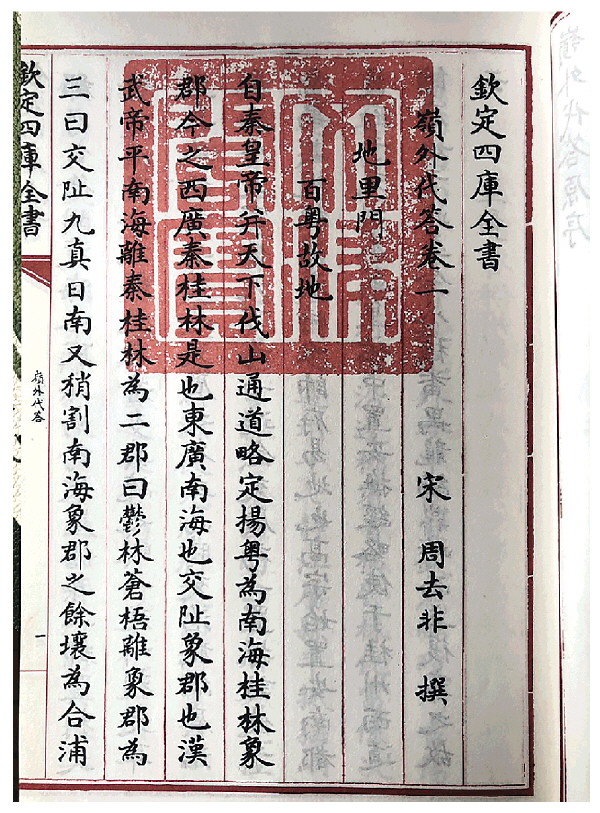 欽定四庫全書
嶺外代答卷一 宋 周去非 撰
地里門
百粤故地
自秦皇帝并天下伐山通道略定揚粤為南海桂林象
郡今之西廣秦桂林是也東廣南海也交阯象郡也漢
武帝平南海離秦桂林為二郡曰鬱林蒼梧離象郡為
三曰交阯九真日南又稍割南海象郡之餘壤為合浦
欽定四庫全書
嶺外代答
一